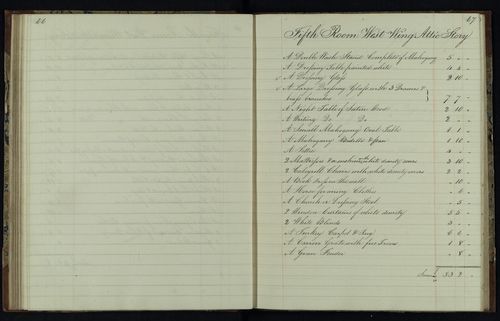 66
67
Fifth Room West Wing Attic Story
A Double Wash Stand Complete of Mahogany 5 " "
A Dressing Table painted white 4 4 "
A Dressing Glass 2 10 "
A Large Dressing Glass with 3 Drawers &
brass 7 7 "
A Night Table of Satin Wood 2 10 "
A Writing Do Do 2 " "
A Small Mahogany Oval Table 1 1 "
A Mahogany 1 10 "
A
2 white dimity 3 10 "
2 Chairs with white dimity covers 2 2 "
A on the wall " 10 "
A Horse for airing Clothes " 6 "
A Church or Dressing Stool " 5 "
2 Window Curtains of white dimity 5 5 "
2 White Blinds
A Turkey Carpet & Rug 6 6 "
A Grate with fire Irons 1 8 "
A Green Fender " 8 "
£ 53 2 "